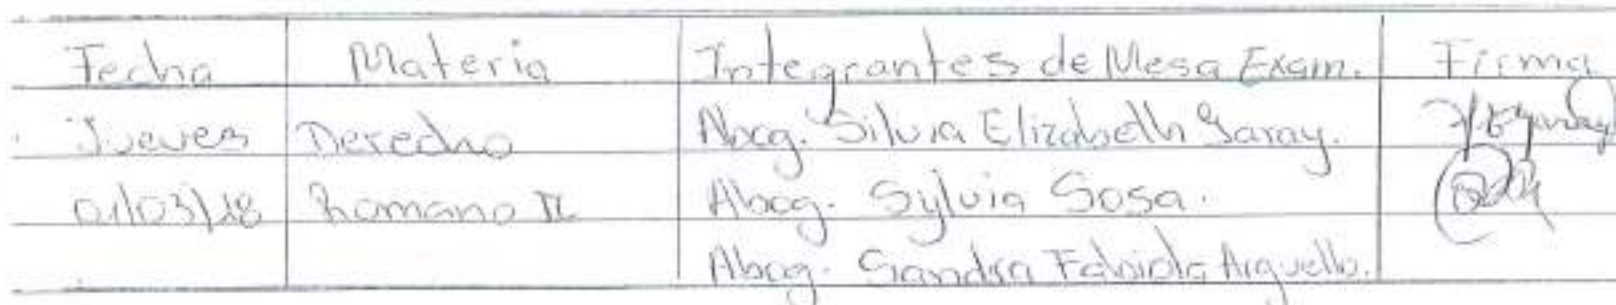 Fecha Materia Integrantes de Mesa Exam. Firma
Jueves Derecho Abog. Silvia Elizabeth Garay.
01/03/18 Romano II Abog. Sylvia Sosa.
Abog. Sandra Fabiola Arguello.